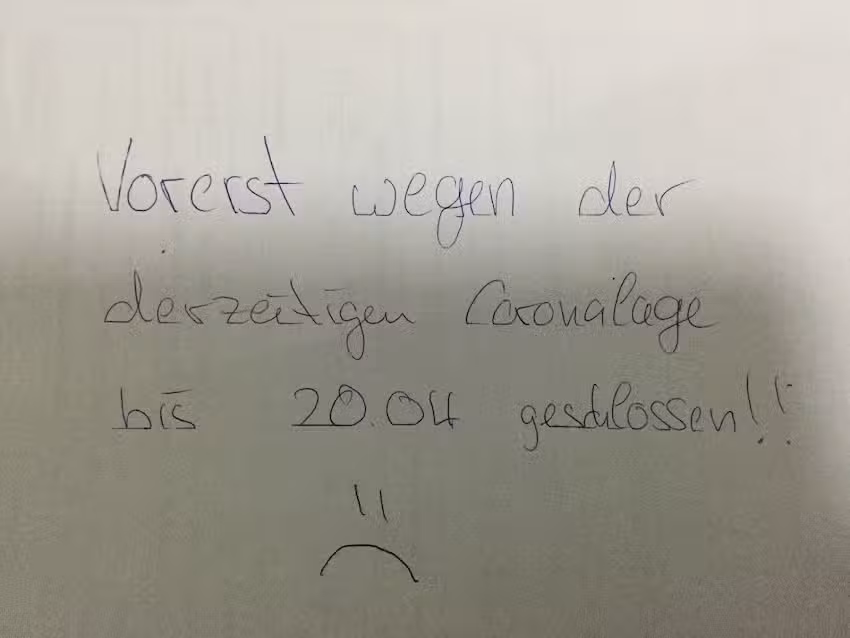 Vorerst wegen der
derzeitigen Coronalage
bis 20.04 geschlossen!!